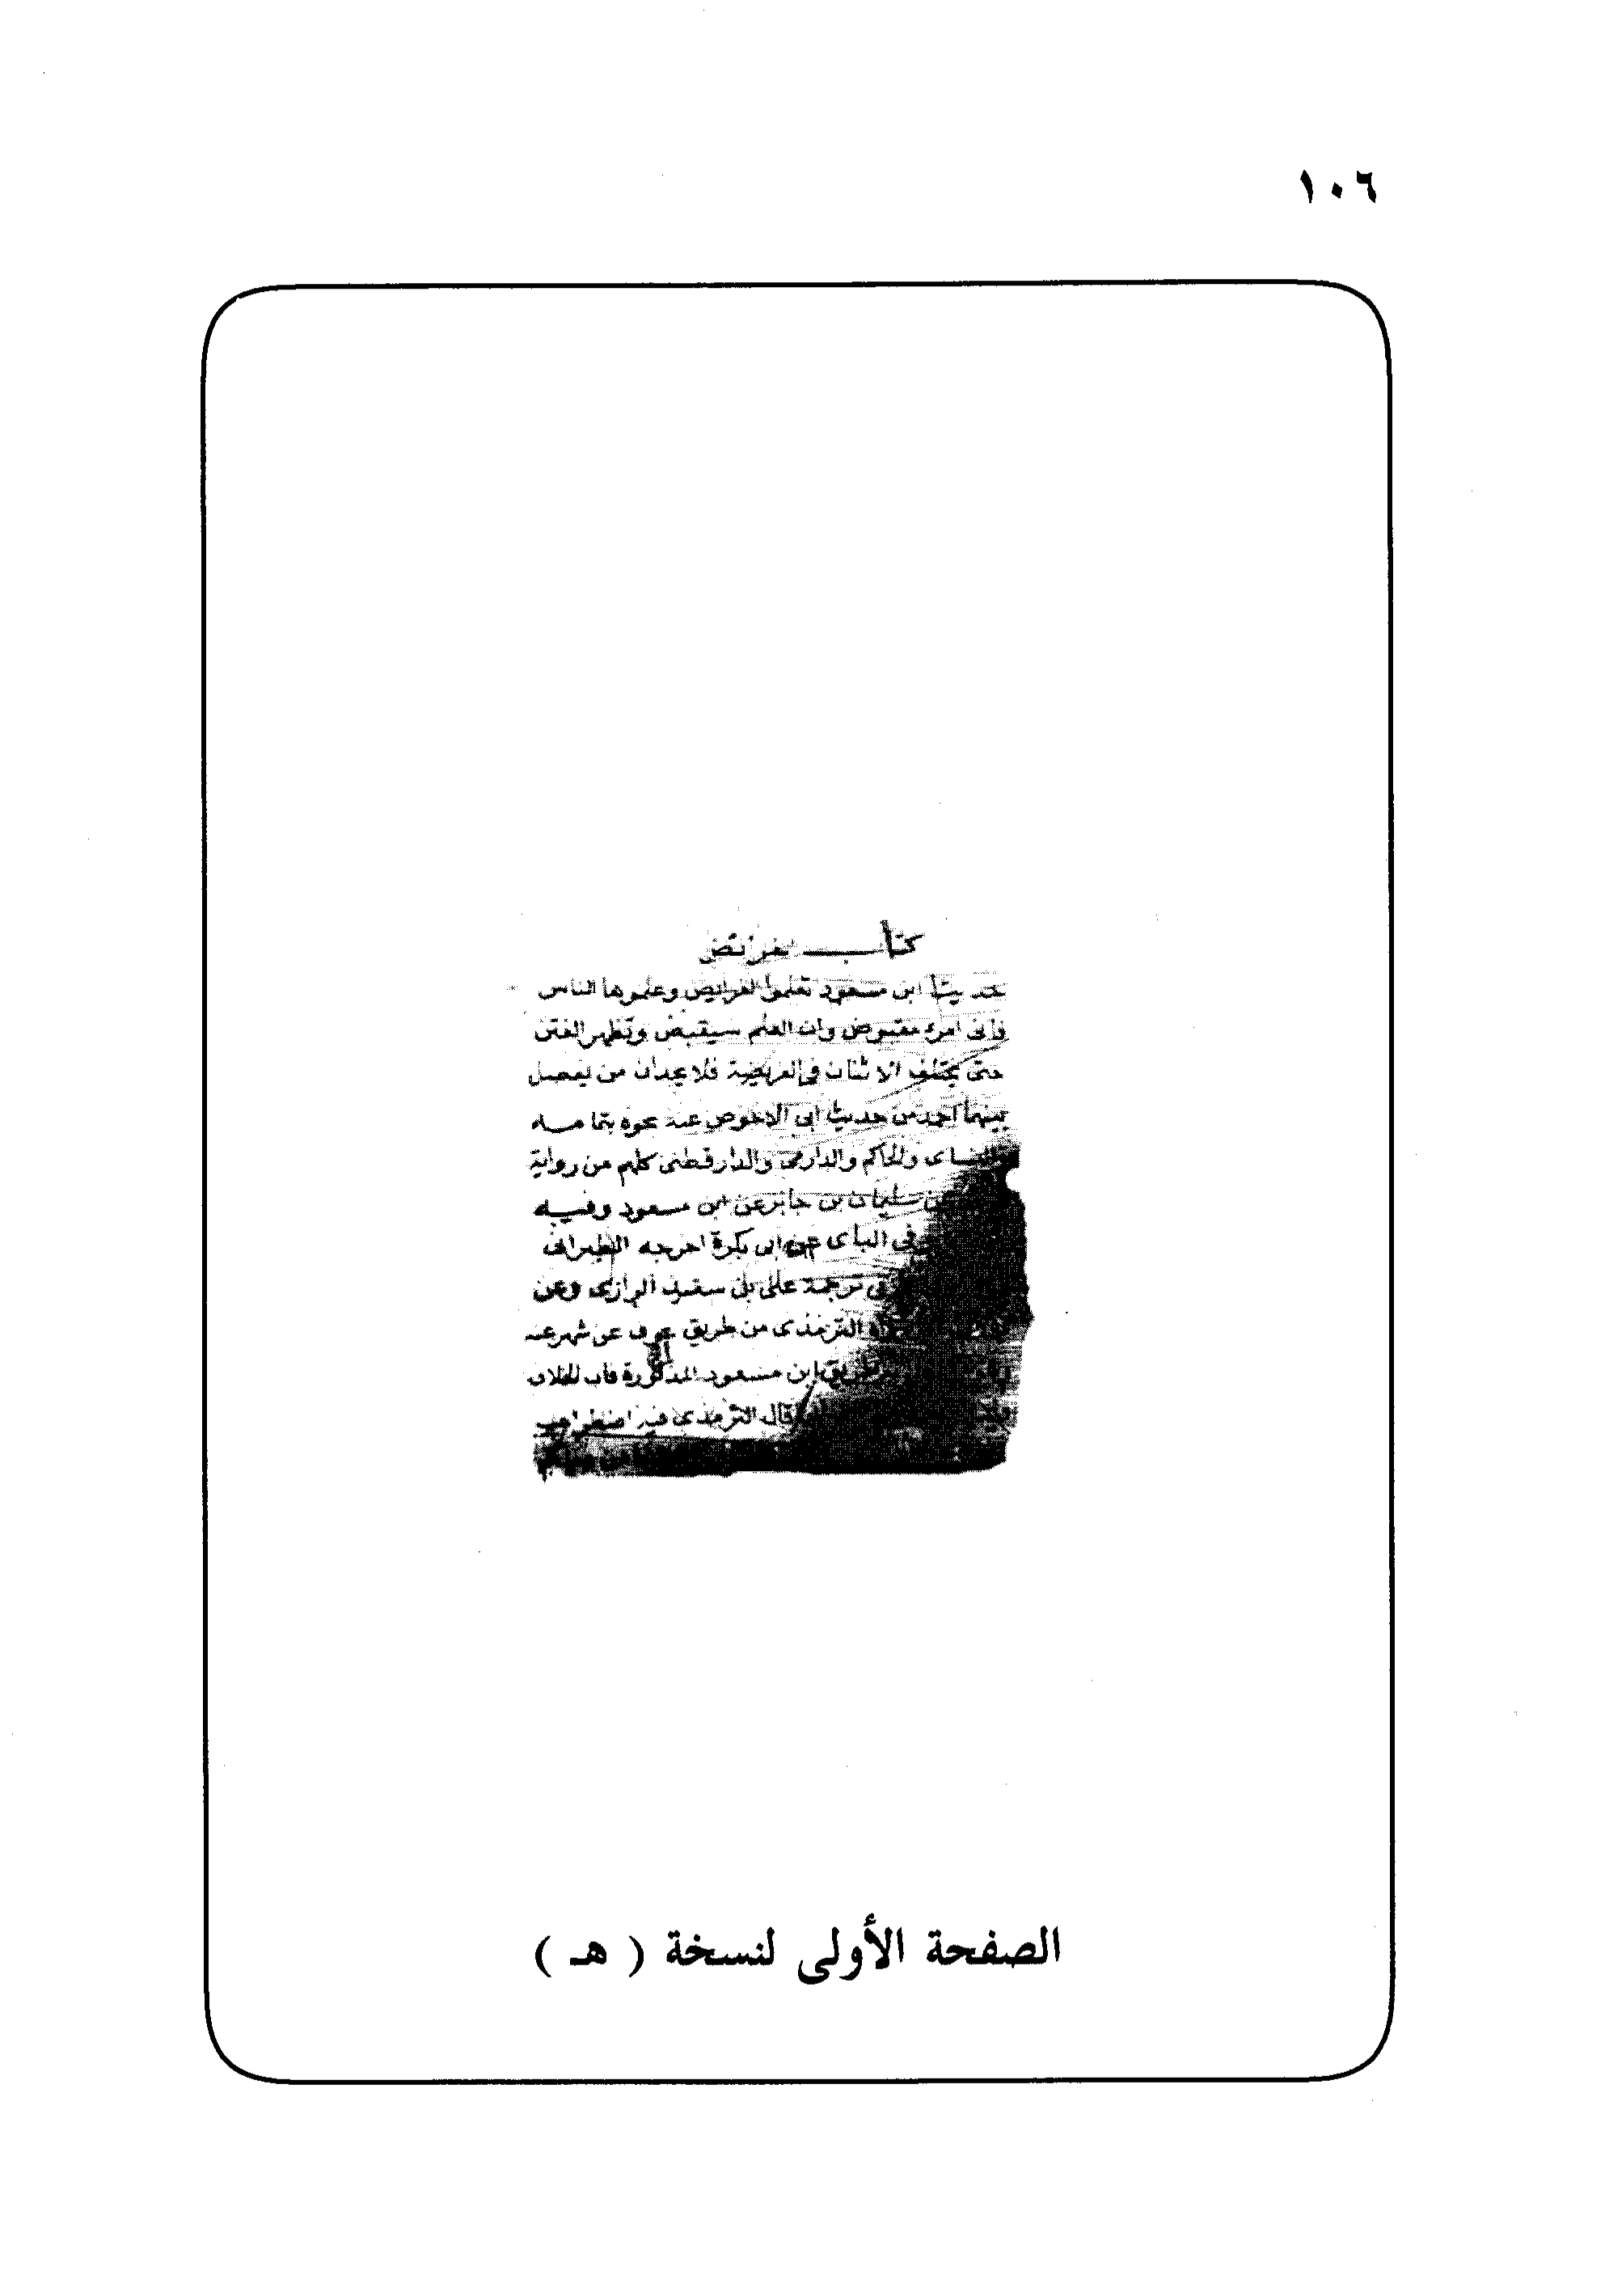 ١٠٦
كتاب الفرائض
حديث ابن مسعود تعلموا الفرايض وعلموها الناس
فانى امرء مقبوض وان العلم سيقبض وتظهر الفتن
حتى يختلف الاثنان في الفريضة فلا يجدان من يفصل
بينهما احمد من حديث ابى الاحوص عنه نحوه بتمامه
والنساى والحاكم والدارمى والدارقطنى كلهم من رواية
سليمان بن جابر عن ابن مسعود وفيه
وفى الباب عن ابى بكرة اخرجه الطبرانى
فى ترجمة على بن سعيد الرازى وعن
الترمذى من طريق عوف عن شهر عنه
طريق ابن مسعود المذكورة فان الخلاف
قال الترمذى فيه اضطراب
الصفحة الأولى لنسخة ( هـ )